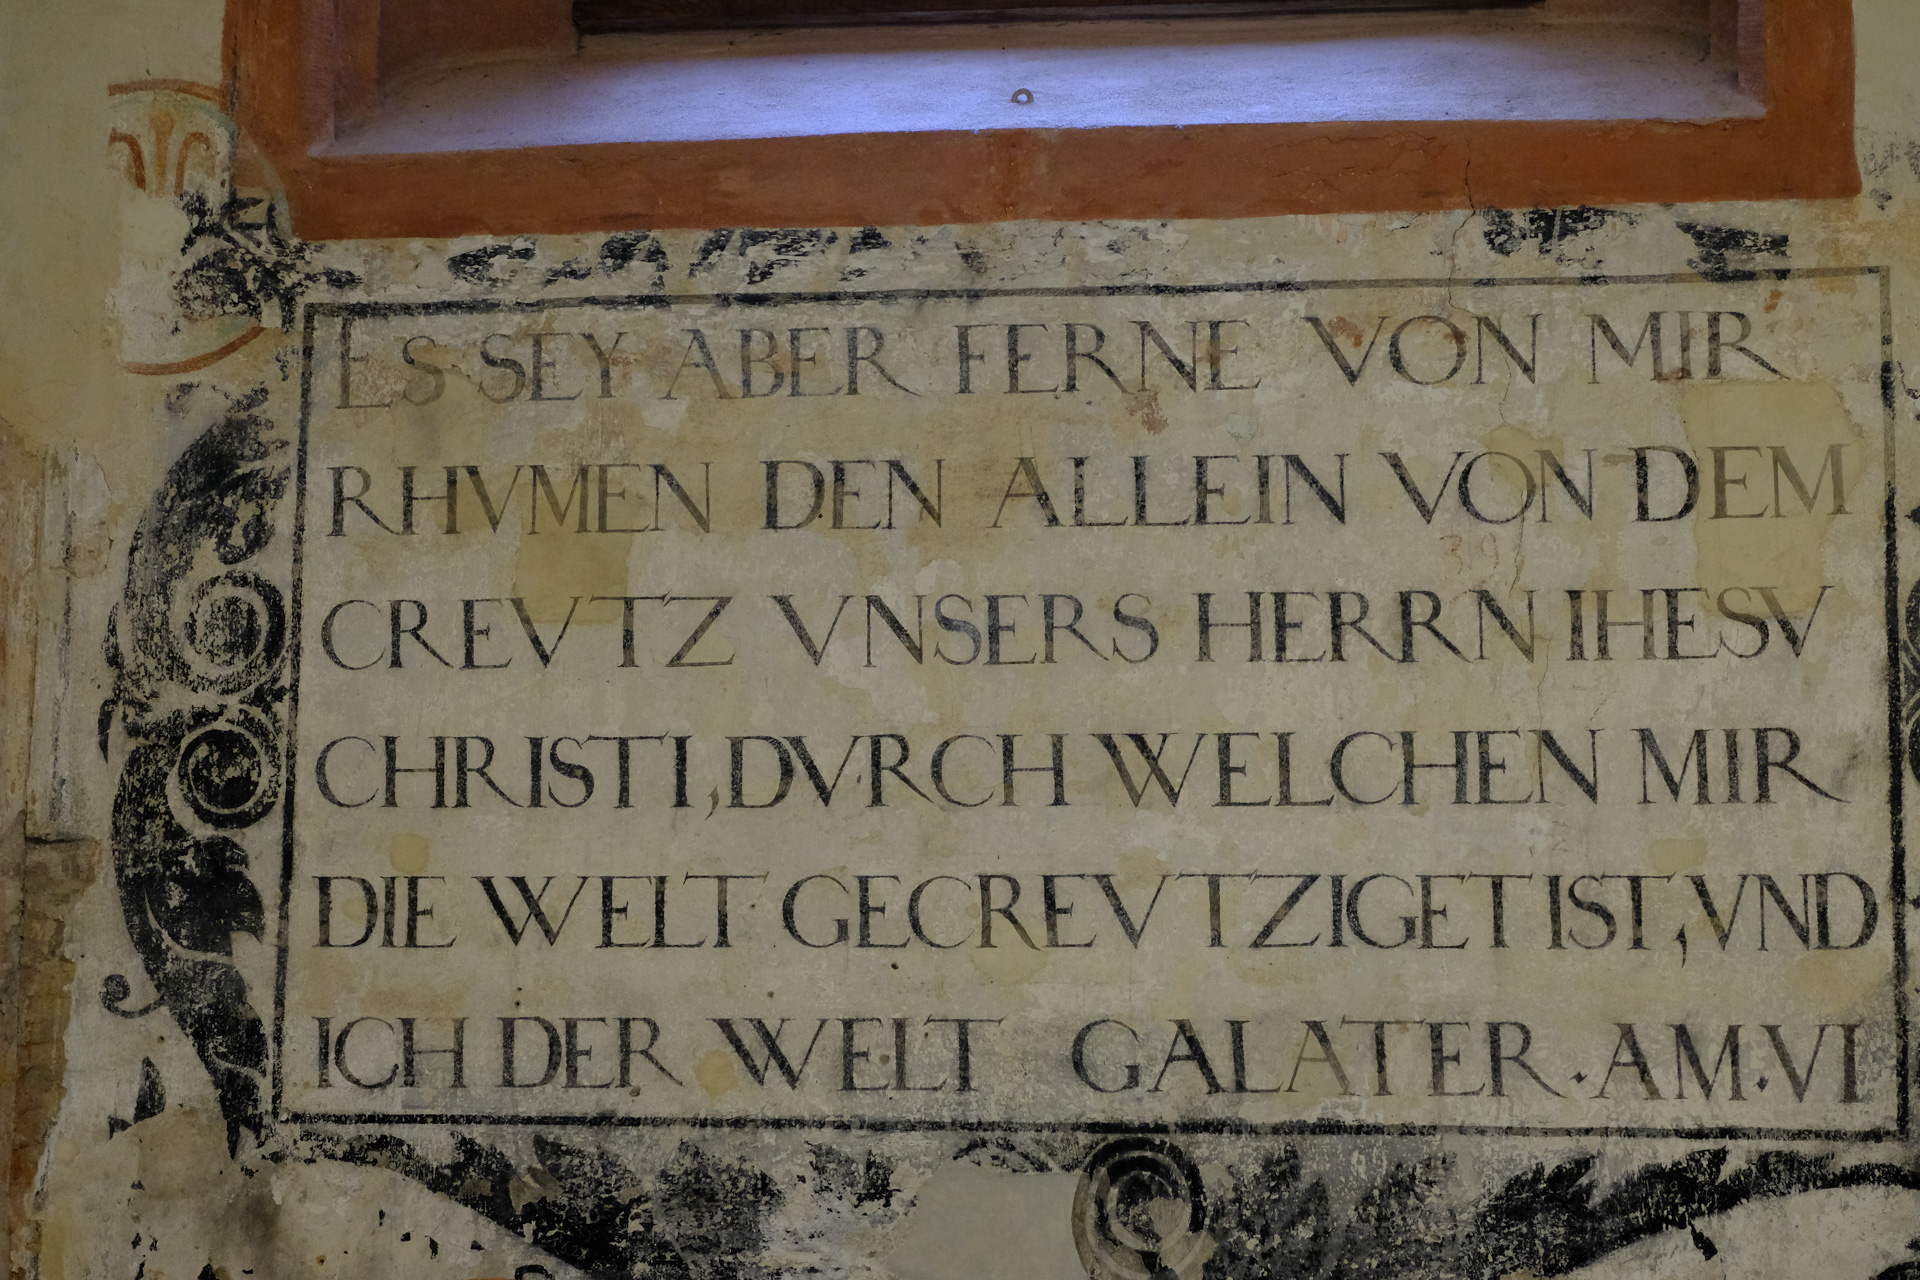 ES SEY ABER FERNE VON MIR
RHVMEN DEN ALLEIN VON DEM
CREVTZ VNSERS HERRN IHESV
CHRISTI, DVRCH WELCHEN MIR
DIE WELT GECREVTZIGET IST, VND
ICH DER WELT GALATER · AM · VI